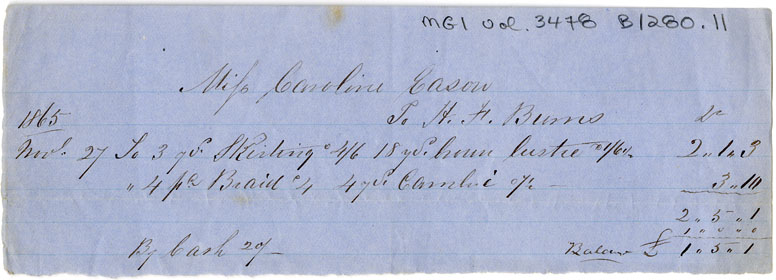 MG1 vol. 3478 B1280.11
Miss Caroline Eason
1865 To H. F. Burns Dr
Novr. 27 To 3 yds Skirting @ 4/6 18 yds lustre 2 " 1 " 3
" 4 ps Braid 4 yds 3 " 10
2 " 5 " 1
1 " 0 " 0
By Cash 20/- Balance £ 1 " 5 " 1